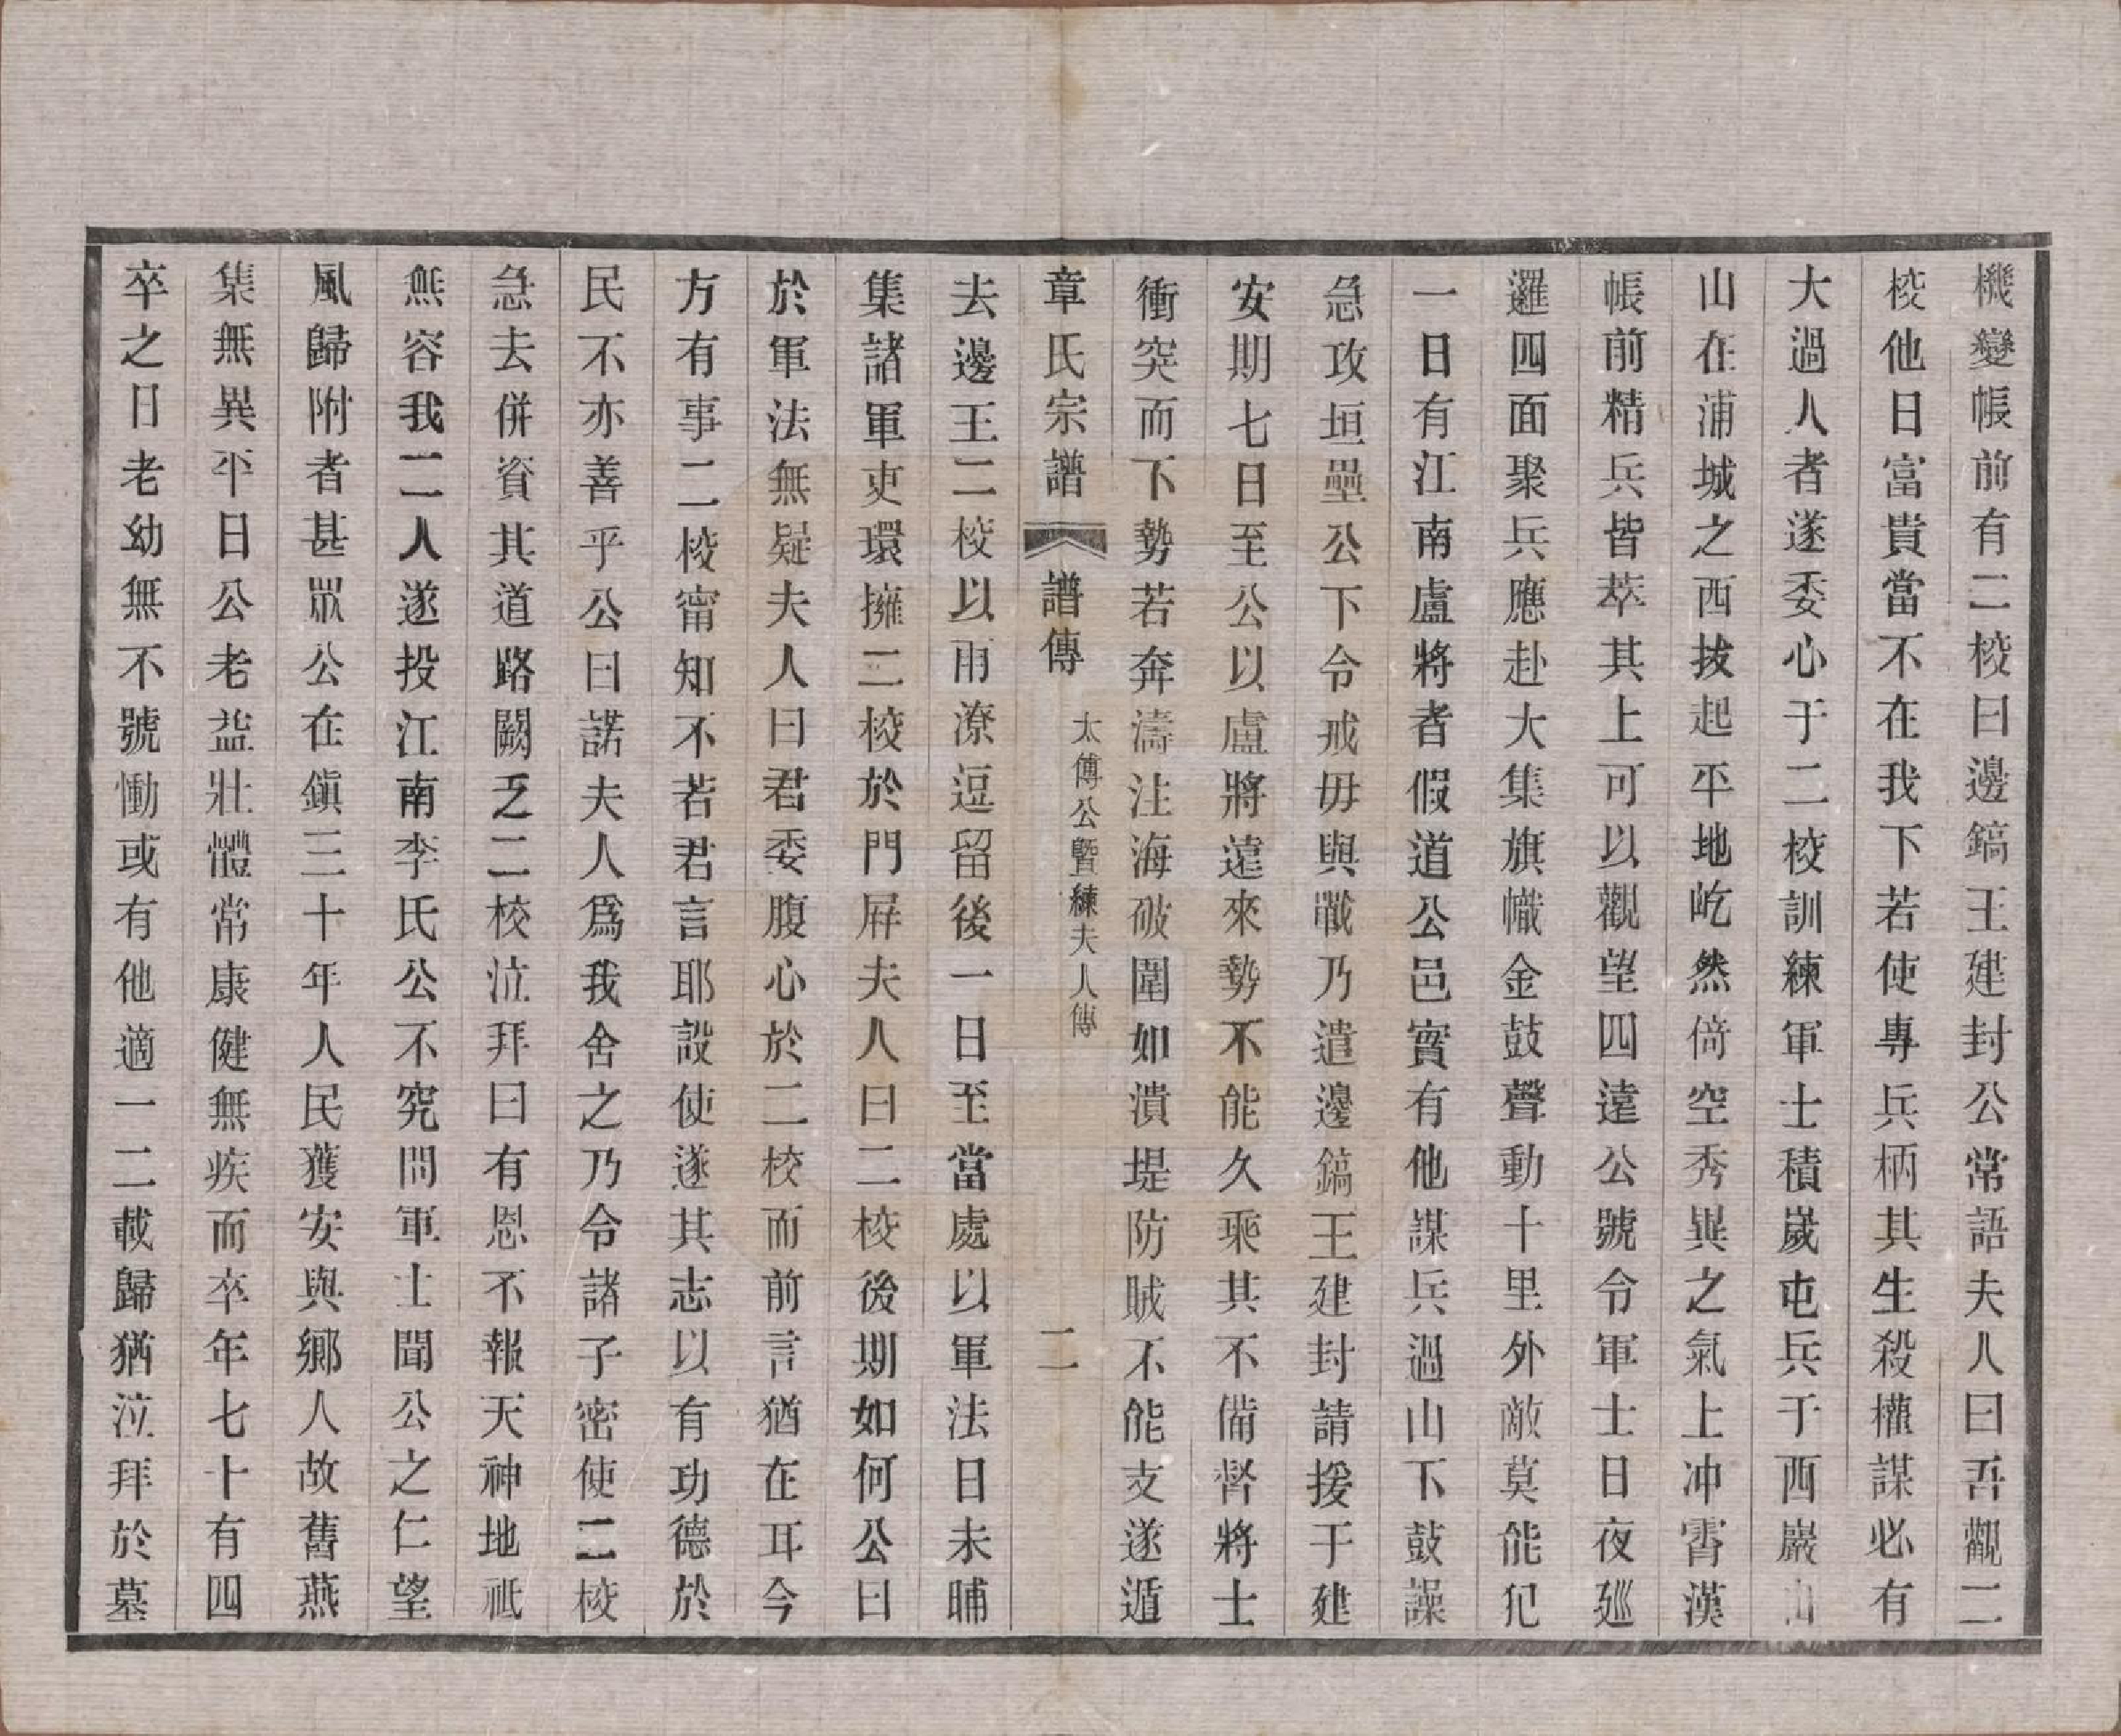 機變帳前有二校曰邊鎬王建封公常語夫人曰吾觀二
校他日富貴當不在我下若使專兵柄其生殺權謀必有
大過人者遂委心于二校訓練軍士積嵗屯兵于西巖山
山在浦城之西拔起平地屹然倚空秀異之氣上冲霄漢
帳前精兵皆萃其上可以觀望四遠公號令軍士日夜廵
邏四面聚兵應赴大集旗幟金鼓聲動十里外敵莫能犯
一日有江南盧將者假道公邑實有他謀兵過山下鼓譟
急攻垣壘公下令戒毋與戰乃遣邊鎬王建封請援于建
安期七日至公以盧將遠來勢不能久乘其不備督將士
衝突而下勢若奔濤注海破圍如潰堤防賊不能支遂遁
章氏宗譜
譜傳
太傅公暨練夫人傳
二
去邊王二校以雨潦逗留後一日至當處以軍法日未晡
集諸軍吏環擁二校於門屏夫人曰二校後期如何公曰
於軍法無疑夫人曰君委腹心於二校而前言猶在耳今
方有事二校甯知不若君言耶設使遂其志以有功德於
民不亦善乎公曰諾夫人爲我舍之乃令諸子密使二校
急去併資其道路闕乏二校泣拜曰有恩不報天神地祗
無容我二人遂投江南李氏公不究問軍士聞公之仁望
風歸附者甚眾公在鎭三十年人民獲安與鄉人故舊燕
集無異平日公老益壯體常康健無疾而卒年七十有四
卒之日老幼無不號慟或有他適一二載歸猶泣拜於墓